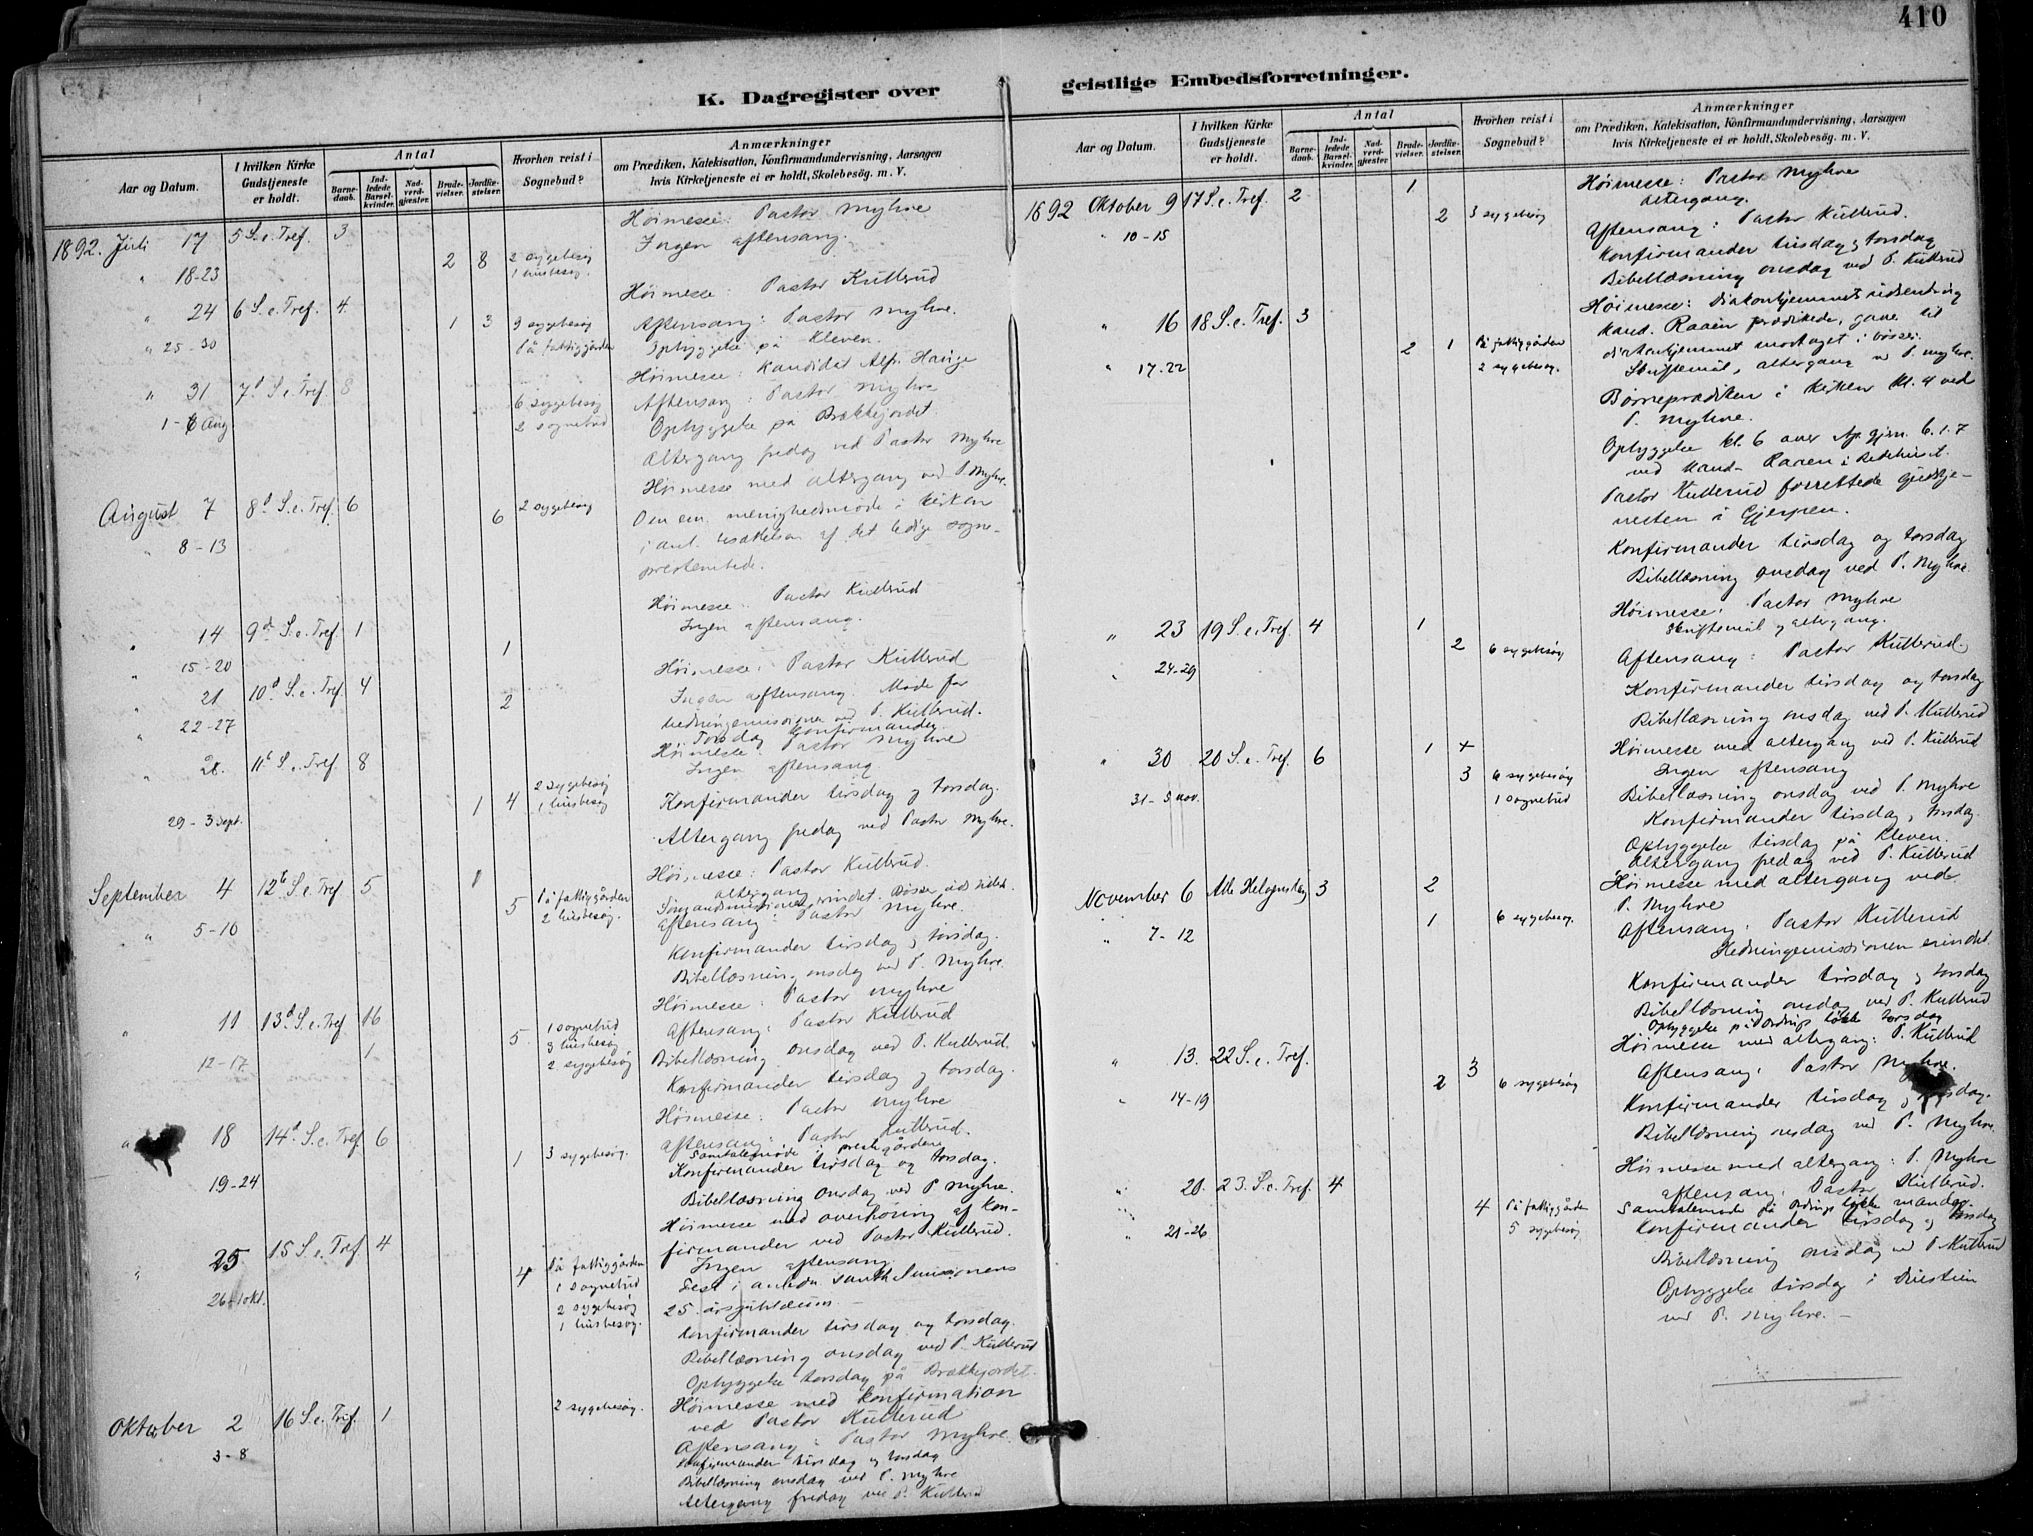 410
K. Dagregister over
Aar og Datum.
I hvilken Kirke Gudstjeneste er holdt.
Antal
Barnedaab.
Indledede Barselkvinder.
Nadverdgjester.
Brudevielser.
Jordfæstelser.
Hvorhen reist i Sognebud?
Anmærkninger
om Prædiken, Katekisation, Konfirmandundervisning, Aarsagen
hvis Kirketjeneste ei er holdt, Skolebesøg. m. V.
1892. Juli 17 5 S. e. Tref. 3 Høimesse: Pastor Myhre
Ingen aftensang.
" 18-23 2 8 2 sygebesøg
1 husbesøg.
" 24 6 S. e. Tref. 4 Høimesse: Pastor Kullerud
Aftensang: Pastor Myhre.
" 25-30 1 3 9 sygebesøg
På fattiggården
Opbyggelse på Kleven.
" 31 7d S. e. Tref. 8 Høimesse: Kandidat Alfr. Hauge
Aftensang: Pastor Myhre
1-6 Aug 6 sygebesøg
2 sognebud
Opbyggelse på Brækkejordet.
Altergang fredag ved Pastor Myhre
August 7 8d S. e. Tref. 6 Høimesse med altergang ved P. Myhre.
" 8-13 6 2 sygebesøg
Om em. menighedsmøde i kirken
i anl. besættelsen af det ledige sogne-
presteembede.
" 14 9d S. e. Tref. 1 Høimesse: Pastor Kullerud
Ingen aftensang.
" 15-20 1
" 21 10d S. e. Tref. 4 Høimesse: Pastor Kullerud
Ingen aftensang. Møde for
hedningemissionen ved P. Kullerud.
" 22-27 2 Torsdag konfirmander
" 28. 11t S. e. Tref. 8 Høimesse: Pastor Myhre
Ingen aftensang
29-3 Sept. 1 4 2 sygebesøg
1 husbesøg
Konfirmander tirsdag og torsdag.
Altergang fredag ved Pastor Myhre.
September 4 12t S. e. Tref. 5 1 Høimesse: Pastor Kullerud.
altergang
Aftensang: Pastor Myhre.
" 5-10 5 På fattiggården
2 husbesøg.
Konfirmander tirsdag og torsdag.
Bibellæsning onsdag ved P. Myhre.
" 11 13d S. e. Tref. 16 Høimesse: Pastor Myhre
Aftensang: Pastor Kullerud
12-17 1 5 1 sognebud
3 husbesøg
2 sygebesøg
Bibellæsning onsdag ved P. Kullerud.
Konfirmander tirsdag og torsdag.
" 18 14d S. e. Tref. 6 Høimesse: Pastor Myhre
Aftensang: Pastor Kullerud.
Samtalemøde i prestegården
19-24 1 3 sygebesøg.
Konfirmander tirsdag og torsdag.
Bibellæsning onsdag ved P. Myhre.
" 25 15 S. e. Tref. 4 Høimesse med overhøring af kon-
firmander ved Pastor Kullerud.
Ingen aftensang.
26-1 okt. 4 På fattiggården
1 sognebud
2 sygebesøg
1 husbesøg.
25 årsjubilæum.
Konfirmander tirsdag og torsdag.
Bibellæsning onsdag ved P. Kullerud
Opbyggelse torsdag på Brækkejordet.
Oktober 2 16 S. e. Tref. 1 2 sygebesøg. Høimesse med konfirmation
ved Pastor Kullerud
3-8 Aftensang: Pastor Myhre.
Konfirmander tirsdag og torsdag
Bibellæsning onsdag ved P. Myhre
Altergang fredag ved P. Kullerud
geistlige Embedsforretninger.
Aar og Datum.
I hvilken Kirke Gudstjeneste er holdt.
Antal
Barnedaab.
Indledede Barselkvinder.
Nadverdgjester
Brudevielser.
Jordfæstelser.
Hvorhen reist i Sognebud?
Anmærkninger
om Prædiken, Katekisation, Konfirmandundervisning, Aarsagen
hvis Kirketjeneste ei er holdt, Skolebesøg. m. V.
1892 Oktober 9 17 S. e. Tref. 2 1 Høimesse: Pastor Myhre
Altergang.
" 10-15 2 3 sygebesøg
Aftensang: Pastor Kullerud.
Konfirmander tirsdag og torsdag
Bibellæsning onsdag ved P. Kullerud
" 16 18 S. e. Tref. 3 Høimesse: Diakonhjemmets udsending
kand. Raaen prædikede, gave til
diakonhjemmet modtaget i bøsser.
" 17-22 2 1 På fattiggården
2 sygebesøg.
Skriftemål, altergang v. P. Myhre.
Børneprædiken i kirken kl. 4 ved
P. Myhre.
Opbyggelse kl. 6 over Ap. gjern. 6. 1-7
ved kand. Raaen i Bedehuset.
Pastor Kullerud forrettede gudstje-
nesten i Gjerpen.
Konfirmander tirsdag og torsdag
Bibellæsning onsdag ved P. Myhre.
" 23 19 S. e. Tref. 4 1 Høimesse: Pastor Myhre
Skriftemål og altergang.
" 24-29 2 6 sygebesøg
Aftensang: Pastor Kullerud.
Konfirmander tirsdag og torsdag
Bibellæsning onsdag ved P. Kullerud
" 30 20 S. e. Tref. 6 1 + Høimesse med altergang ved P. Kullerud
Ingen aftensang
31-5 nov. 3 6 sygebesøg
1 sognebud
Bibellæsning onsdag ved P. Myhre
Konfirmander tirsdag, torsdag.
Opbyggelse tirsdag på Kleven.
Altergang fredag ved P. Kullerud
November 6 Alle Helgensdag 3 2 Høimesse med altergang ved
P. Myhre
" 7-12 1 6 sygebesøg.
Aftensang: Pastor Kullerud
Hedningemissionen erindret.
Konfirmander tirsdag og torsdag
Bibellæsning onsdag ved P. Kullerud
Opbyggelse på Ordrups løkke torsdag
" 13. 22 S. e. Tref. 3 Høimesse med altergang: P. Kullerud
Aftensang: Pastor Myhre.
" 14-19 2 6 sygebesøg
Konfirmander tirsdag og torsdag.
Bibellæsning onsdag ved P. Myhre.
" 20. 23. S. e. Tref. 4 Høimesse med altergang: P. Myhre
Aftensang: Pastor Kullerud.
" 21-26 4 På fattiggården
5 sygebesøg
Samtalemøde på Ordrups løkke mandag.
Konfirmander tirsdag og torsdag
Bibellæsning onsdag ved P. Kullerud
Opbyggelse tirsdag i
ved P. Myhre. —